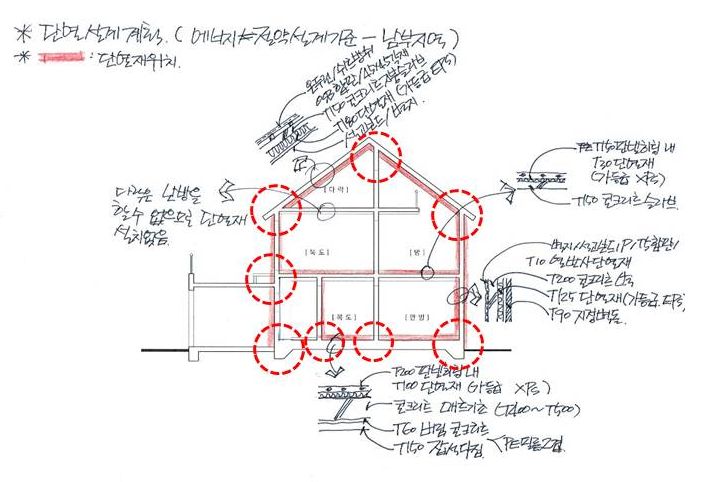 * 단열설계계획. (에너지절약설계기준 - 남부지역)
* : 단열재위치.
OSB합판/
T150 콘크리트지붕슬라브
T180 단열재 (가등급 EPS)
석고보드/벽지.
다락은 난방을
할수 없으므로 단열재
설치없음.
[다락]
[복도]
[방]
[복도]
[안방]
T150 판넬히팅 내
T30 단열재
(가등급 XPS)
T150 콘크리트 슬라브.
벽지/석고보드1P/T5합판/
T10 열반사단열재
T200 콘크리트
T125 단열재(가등급 EPS)
T90 치장벽돌.
T200 판넬히팅 내
T100 단열재 (가등급 XPS)
콘크리트 매트기초 (T400~T500)
T60 버림 콘크리트
T150 잡석다짐
PE필름2겹.